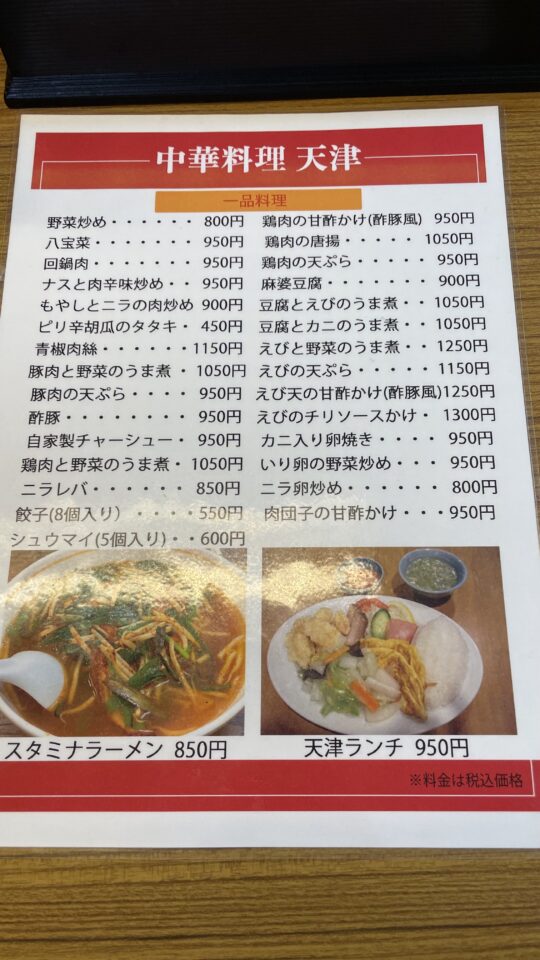 中華料理 天津
一品料理
野菜炒め・・・・・・ 800円
八宝菜・・・・・・・ 950円
回鍋肉・・・・・・・ 950円
ナスと肉辛味炒め・・ 950円
もやしとニラの肉炒め 900円
ピリ辛胡瓜のタタキ・ 450円
青椒肉絲・・・・・・1150円
豚肉と野菜のうま煮・1050円
豚肉の天ぷら・・・・ 950円
酢豚・・・・・・・・ 950円
自家製チャーシュー・ 950円
鶏肉と野菜のうま煮・1050円
ニラレバ・・・・・・ 850円
餃子(8個入り）・・・・550円
シュウマイ(5個入り)・・600円
鶏肉の甘酢かけ(酢豚風) 950円
鶏肉の唐揚・・・・・1050円
鶏肉の天ぷら・・・・・950円
麻婆豆腐・・・・・・・900円
豆腐とえびのうま煮・・1050円
豆腐とカニのうま煮・・1050円
えびと野菜のうま煮・・1250円
えびの天ぷら・・・・・1150円
えび天の甘酢かけ(酢豚風)1250円
えびのチリソースかけ・1300円
カニ入り卵焼き・・・・950円
いり卵の野菜炒め・・・950円
ニラ卵炒め・・・・・・800円
肉団子の甘酢かけ・・・950円
スタミナラーメン 850円
天津ランチ 950円
※料金は税込価格